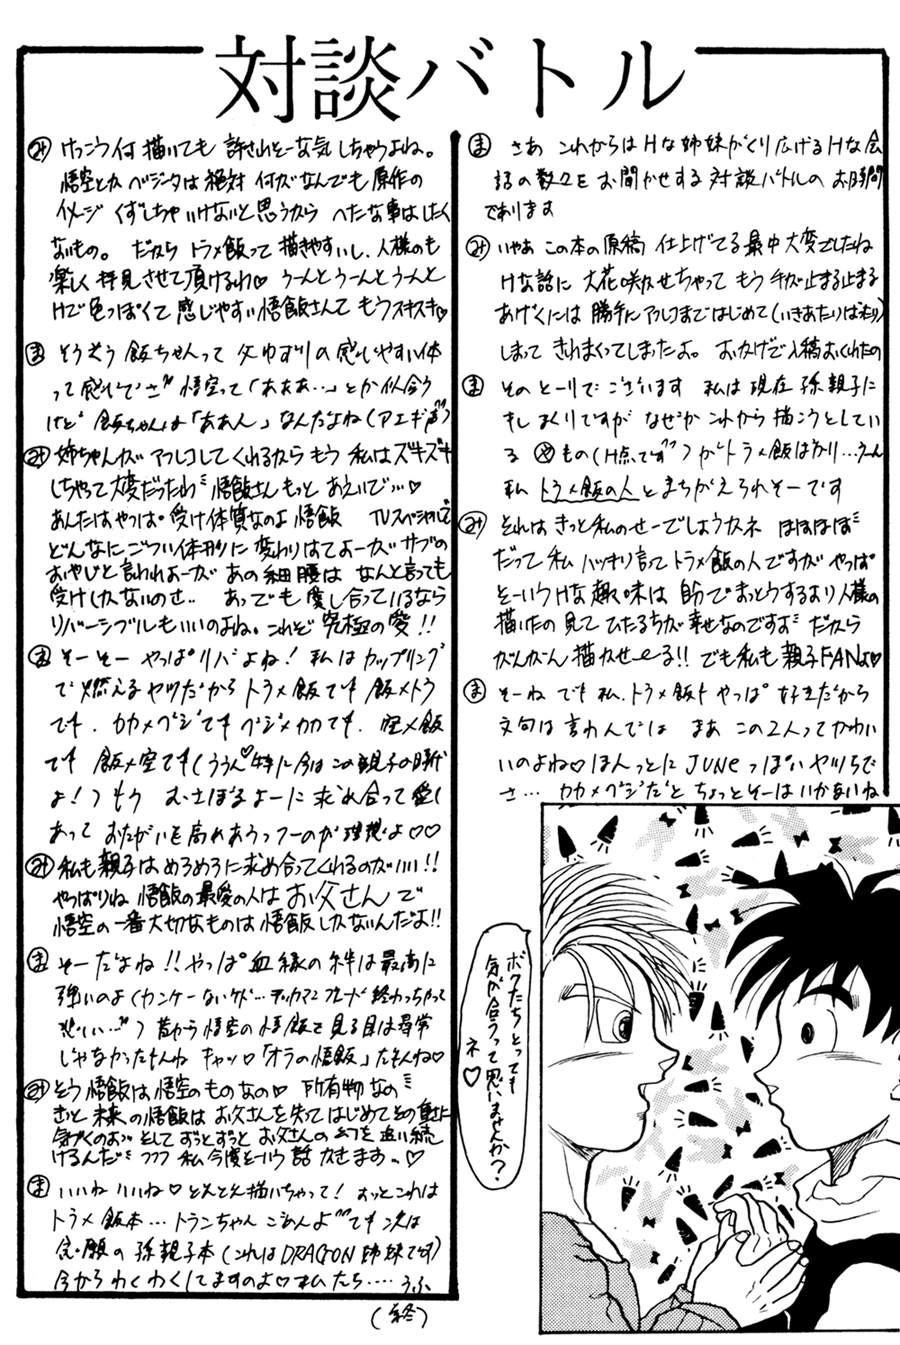 対談バトル
ま さあ これからはHな姉妹がくり広げるHな会
話の数々をお聞かせする対談バトルのお時間
であります
み いやあ この本の原稿 仕上げてる最中大変でしたね
Hな話に 大花咲かせちゃって もう 手が止まる止まる
あげくには 勝手にアフレコまではじめて
しまって きれまくってしまったよ。 おかげで入稿おくれたの
ま そのとーりでございます 私は現在 孫親子に
しまくりですが なぜか これから描こうとしてい
る もの がトラ×飯ばかり…うーん
私 トラ×飯の人とまちがえられそーです
み それは きっと私のせーでしょうかネ ほほほほ
だって 私 ハッキリ言ってトラ×飯の人ですが やっぱ
そーいうHな趣味は 自分でまっとうするより人様の
描いたの 見て ひたるちが 幸せなのですよ だから
がんがん 描かせーる!! でも私も 親子FANよ♡
ま そーね でも 私、トラ×飯も やっぱ 好きだから
文句は言わんでは まあ この2人ってかわい
いのよね♡ ほんっとに JUNEっぽいヤツらで
さ… カカ×ベジだと ちょっとそーはいかないね
み けっこう何描いても 許されそーな気しちゃうよね。
悟空とかベジータは絶対 何がなんでも原作の
イメージ くずしちゃいけないと思うから へたな事はしたく
ないもの。 だから トラ×飯って 描きやすいし、人様のも
楽しく拝見させて頂けるわ♡ うーんとうーんとうーんと
Hで色っぽくて 感じやすい悟飯さんて もうスキスキ♡
ま そうそう 飯ちゃんって 父ゆずりの感じやすい体
って感じでさ 悟空って「あああ…」とか似合う
けど 飯ちゃんは「ああん」なんだよね(アエギ声)
み 姉ちゃんが アフレコしてくれるから もう 私はズキズキ
しちゃって大変だったわ 悟飯さん もっと あえいでッ…♡
あんたはやっぱ 受け体質なのよ 悟飯 TVスペシャルで
どんなにごつい体形に 変わりはてよーが サブの
おやじと言われよーが あの細腰は なんと言っても
受けしかないのさ‥ あっでも 愛し合っているなら
リバーシブルもいいのよね。これぞ 究極の愛!!
ま そーそー やっぱリバよね! 私はカップリング
で燃えるヤツだから トラ×飯でも 飯×トラ
でも、カカ×ベジでもベジ×カカでも、空×飯
でも 飯×空でも(ううん♡特に今はこの親子の時代
よ!)もう むさぼるよーに 求め合って 愛し
あって おたがいを高めあうっつーのが理想よ♡♡
み 私も親子は めろめろに求め合ってくれるのがいい!!
やっぱりね 悟飯の最愛の人は お父さんで
悟空の一番大切なものは悟飯しかないんだよ!!
ま そーだよね!!やっぱ血縁の絆は最高に
強いのよ(カンケーないケド…テッカマンブレード終わっちゃって
悲しい…)昔から悟空の悟飯を見る目は尋常
じゃなかったもんね キャッ♡「オラの悟飯」だもんね♡
み そう悟飯は 悟空のものなの♡ 所有物なの
きっと 未来の悟飯は お父さんを失って はじめてその事に
気づくのよ そして ずっとずっと お父さんの幻を 追い続
けるんだ フフフ 私 今度そーいう話 かきます‥♡
ま いいね いいね♡ どんどん描いちゃって! おっとこれは
トラ×飯本…トランちゃん ごめんよ でも次は
念・願の孫親子本(これはDRAGON姉妹です)
今からわくわくしてますのよ♡ 私たち……うふ
(終)
ボクたちとっても
気が合うって思いませんか?
ネ♡